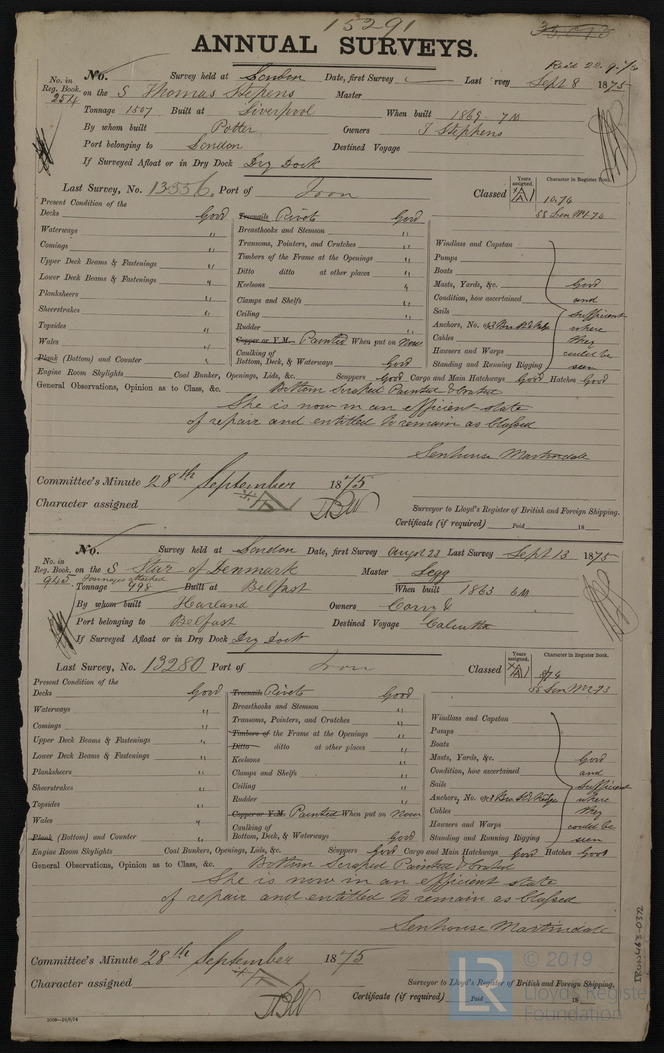 15291
ANNUAL SURVEYS.
No. Survey held at London Date, first Survey Last Survey Sept 8 1875
No. in Reg. Book. 2514 on the S Thomas Stephens Master
Tonnage 1507 Built at Liverpool When built 1869 7M
By whom built Potter Owners T Stephens
Port belonging to London Destined Voyage
If Surveyed Afloat or in Dry Dock Dry Dock
Last Survey, No. 13556 Port of Iron Classed Years assigned. Character in Register Book.
10.74
Present Condition of the
Decks Good Treenails Rivets Good
Waterways " Breasthooks and Stemson "
Comings " Transoms, Pointers, and Crutches " Windlass and Capstan
Upper Deck Beams & Fastenings " Timbers of the Frame at the Openings " Pumps
Lower Deck Beams & Fastenings " Ditto ditto at other places " Boats
Planksheers " Keelsons " Masts, Yards, &c. Good
Sheerstrakes " Clamps and Shelfs " Condition, how ascertained and
Topsides " Ceiling " Sails sufficient
Wales " Rudder " Anchors, No. of where
Plank (Bottom) and Counter " Copper or Y.M. Painted When put on Now Cables they
Caulking of Bottom, Deck, & Waterways Good Hawsers and Warps could be
Standing and Running Rigging seen
Engine Room Skylights Coal Bunkers, Openings, Lids, &c. Scuppers Good Cargo and Main Hatchways Good Hatches Good
General Observations, Opinion as to Class, &c. Bottom Scraped Painted & Coated
She is now in an efficient state
of repair and entitled to remain as Classed
Senhouse Martindale
Committee's Minute 28th September 1875
Character assigned
Surveyor to Lloyd's Register of British and Foreign Shipping.
Certificate (if required) Paid 18
No. Survey held at London Date, first Survey Augst 23 Last Survey Sept 13 1875
No. in Reg. Book. 945 on the S Star of Denmark Master Legg
Tonnage 998 Built at Belfast When built 1863 6M
By whom built Harland Owners Corry &
Port belonging to Belfast Destined Voyage Calcutta
If Surveyed Afloat or in Dry Dock Dry Dock
Last Survey, No. 13280 Port of Iron Classed Years assigned. Character in Register Book.
Present Condition of the
Decks Good Treenails Rivets Good
Waterways " Breasthooks and Stemson "
Comings " Transoms, Pointers, and Crutches " Windlass and Capstan
Upper Deck Beams & Fastenings " Timbers of the Frame at the Openings " Pumps
Lower Deck Beams & Fastenings " Ditto ditto at other places " Boats
Planksheers " Keelsons " Masts, Yards, &c. Good
Sheerstrakes " Clamps and Shelfs " Condition, how ascertained and
Topsides " Ceiling " Sails sufficient
Wales " Rudder " Anchors, No. of where
Plank (Bottom) and Counter " Copper or Y.M. Painted When put on Now Cables they
Caulking of Bottom, Deck, & Waterways Good Hawsers and Warps could be
Standing and Running Rigging seen
Engine Room Skylights Coal Bunkers, Openings, Lids, &c. Scuppers Good Cargo and Main Hatchways Good Hatches Good
General Observations, Opinion as to Class, &c. Bottom Scraped Painted & Coated
She is now in an efficient state
of repair and entitled to remain as Classed
Senhouse Martindale
Committee's Minute 28th September 1875
Character assigned
Surveyor to Lloyd's Register of British and Foreign Shipping.
Certificate (if required) Paid 18
LR
© 2019
Lloyd's Register
Foundation